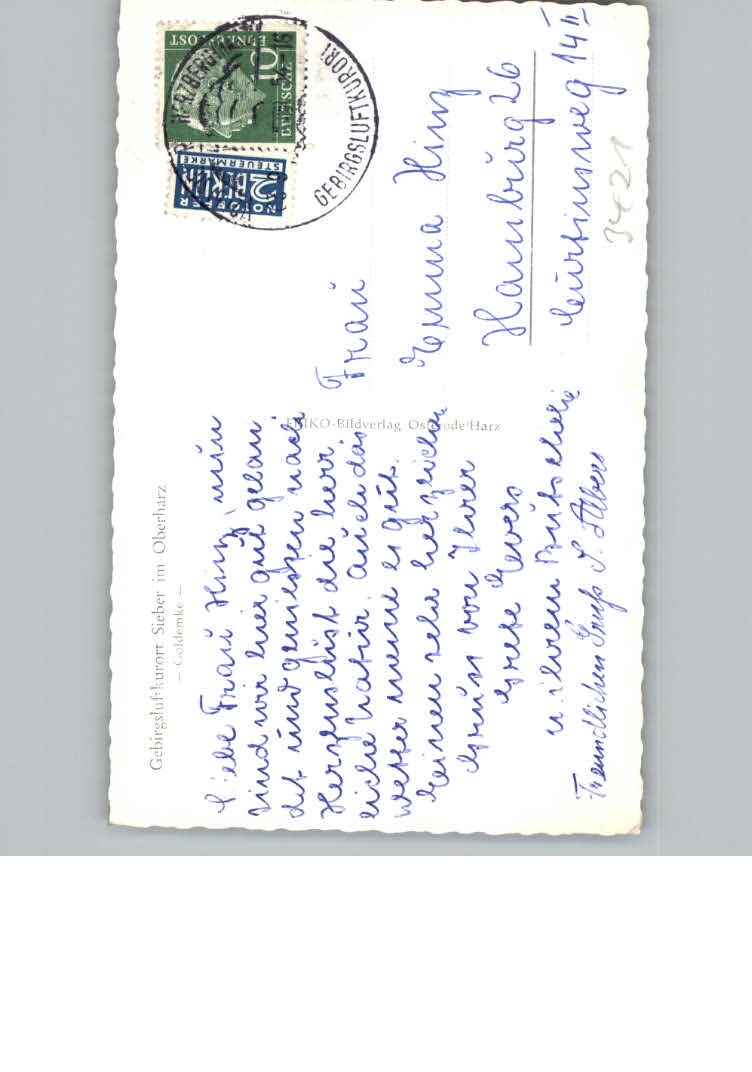 Gebirgsluftkurort Sieber im Oberharz
— Goldemke —
Liebe Frau Hinz, nun
sind wir hier gut gelan
det und geniessen nach
Herzenslust die herr
liche Natur. Auch das
Wetter meint es gut.
Seinen sehr herzlichen
Gruss von Ihrer
Grete Evers
u. ihrem
Freundlichen Gruß S. Albers
FEIKO-Bildverlag Osterode/Harz
Frau
Emma Hinz
Hamburg 26
Curtiusweg 14 II
3421
DEUTSCHE
BUNDESPOST
10
NOTOPFER
2 BERLIN
STEUERMARKE
HERZBERG
GEBIRGSLUFTKURORT